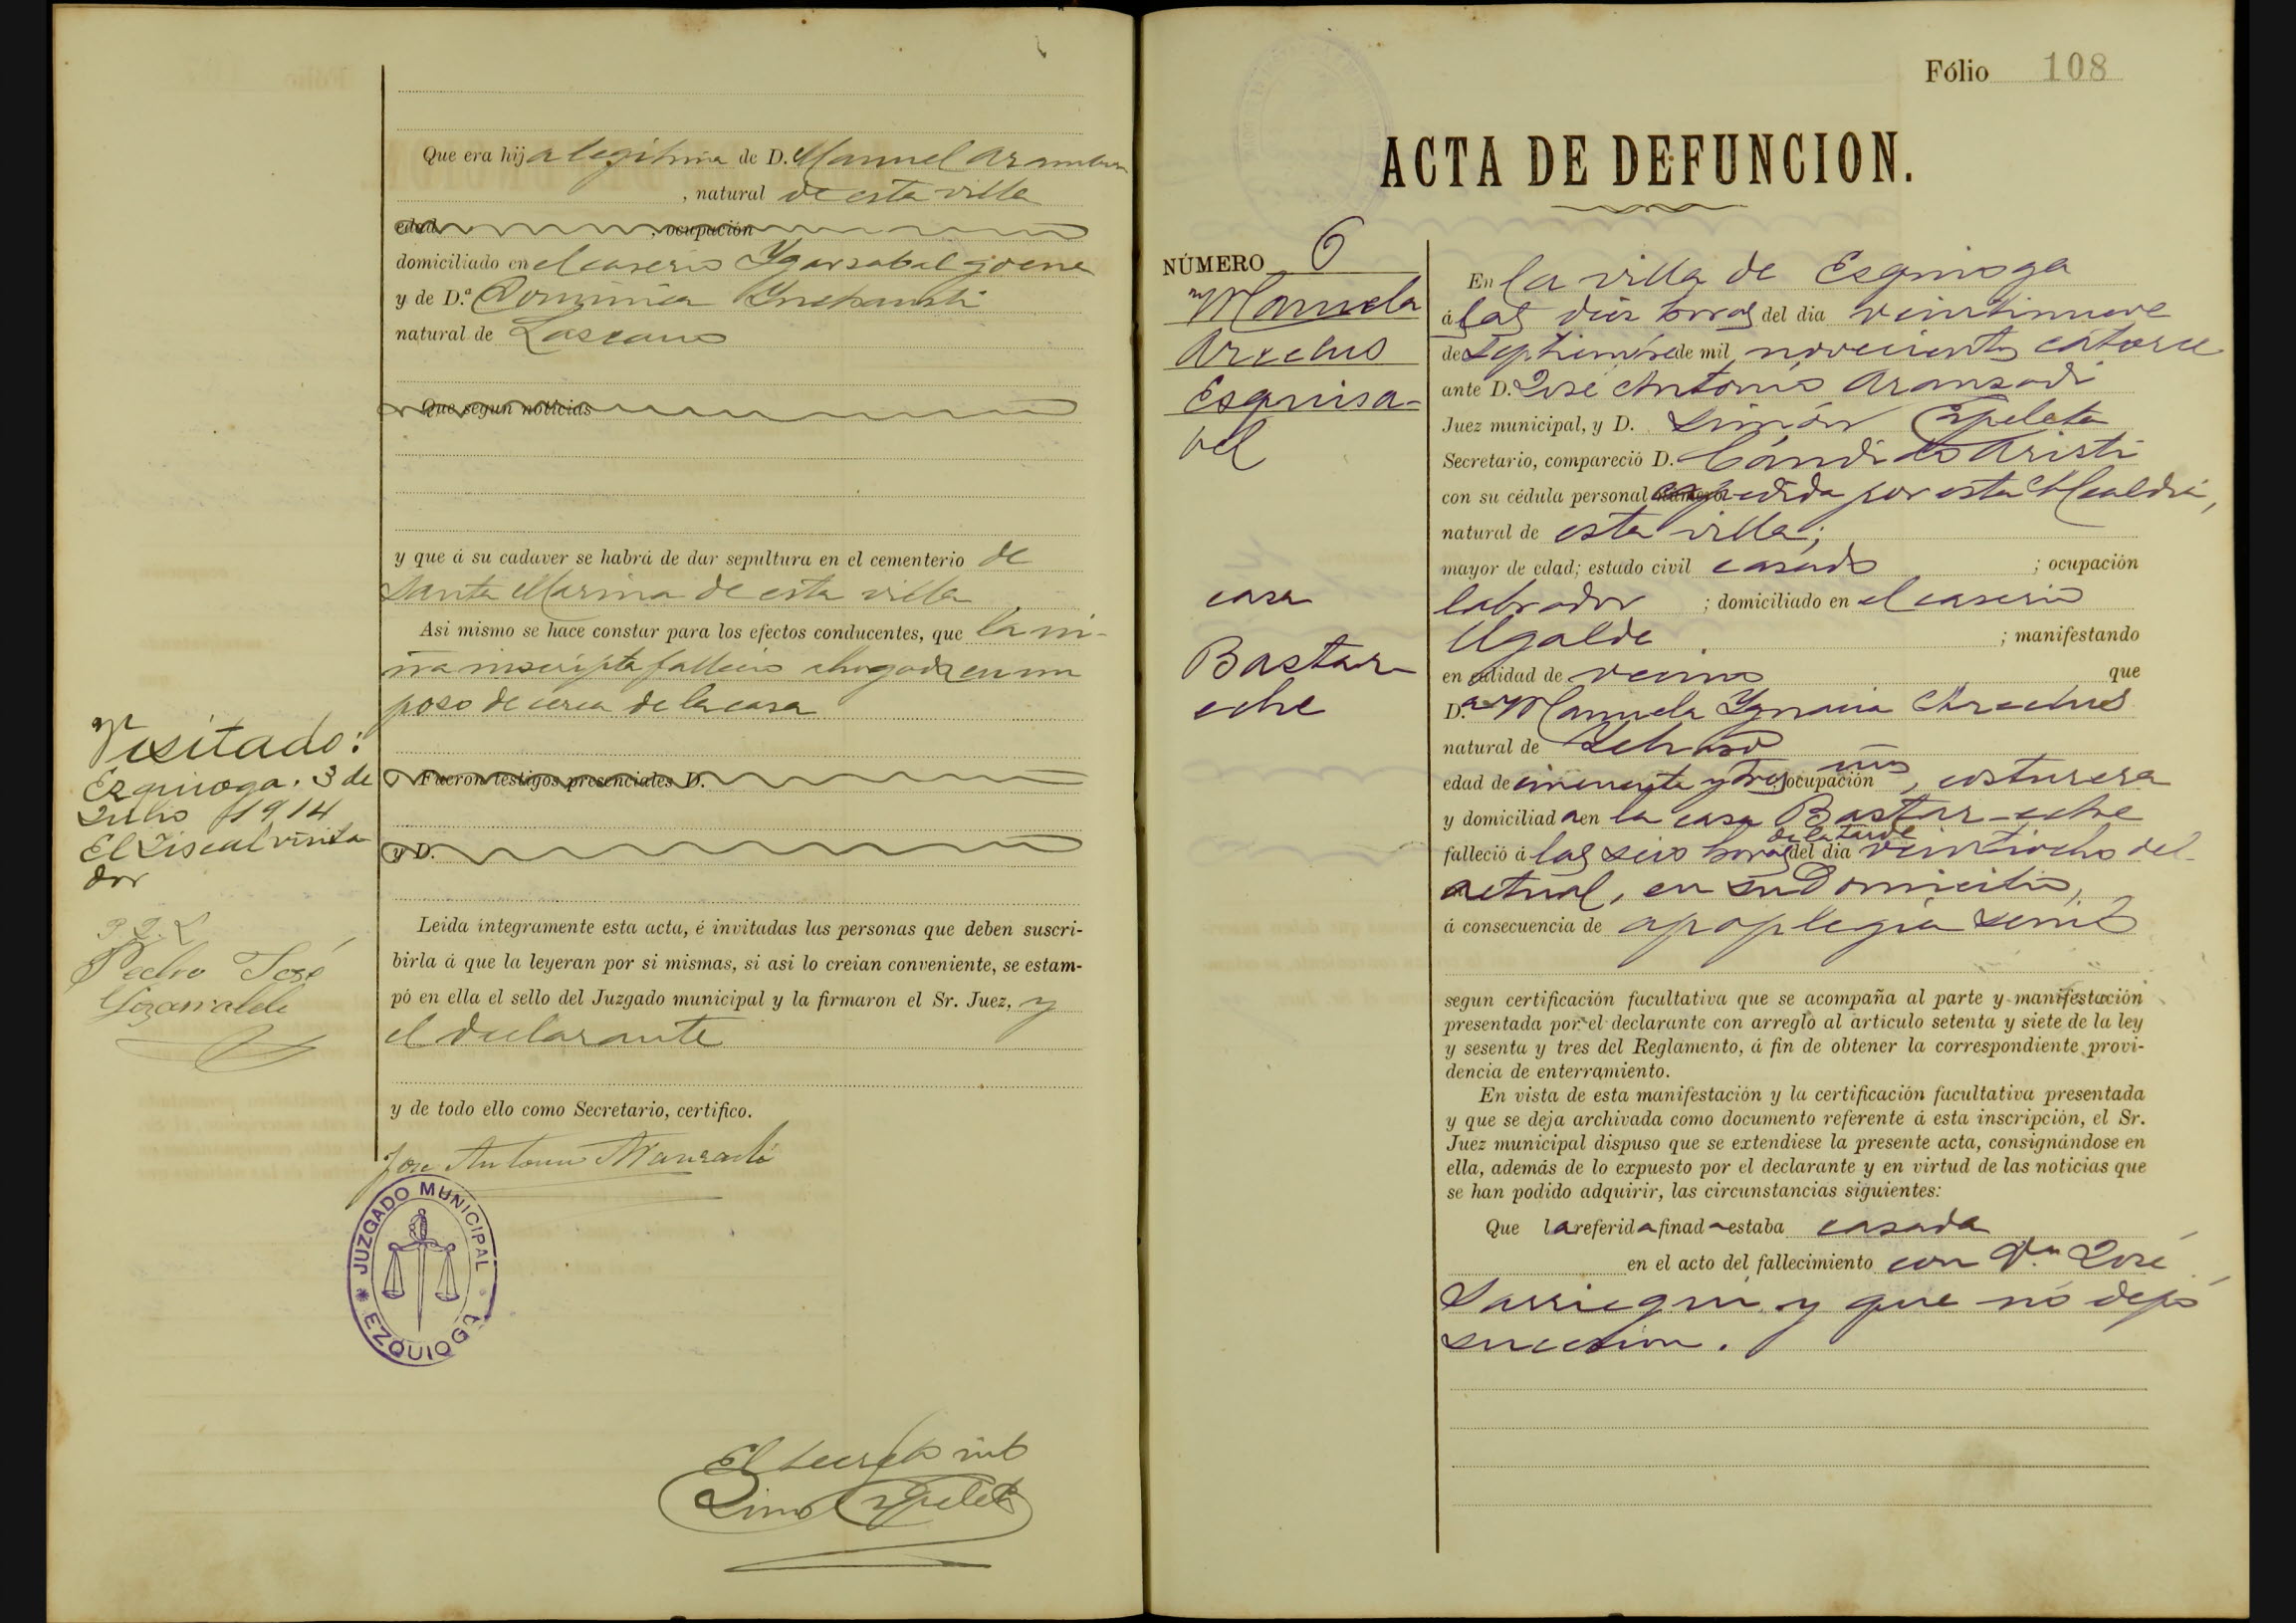 Que era hija legitima de D. Manuel Aramburu
, natural de esta villa
edad , ocupación
domiciliado en el caserio Ygarzabal goena
y de D.ª Dominica
natural de Lascano
Que segun noticias
y que á su cadaver se habrá de dar sepultura en el cementerio de
Santa Marina de esta villa
Asi mismo se hace constar para los efectos conducentes, que la ni-
ña inscripta fallecio ahogada en un
poso de cerca de la casa
Visitado:
Ezquioga. 3 de
Julio 1914
El Fiscal visita
dor
Pedro José
Fueron testigos presenciales D.
y D.
Leida íntegramente esta acta, é invitadas las personas que deben suscri-
birla á que la leyeran por si mismas, si asi lo creian conveniente, se estam-
pó en ella el sello del Juzgado municipal y la firmaron el Sr. Juez, y
el declarante
y de todo ello como Secretario, certifico.
Jose Antonio Aranzadi
JUZGADO MUNICIPAL
EZQUIOGA
El Secreto int
Simon Ezpeleta
Fólio 108
ACTA DE DEFUNCION.
NÚMERO 6
Manuela
Arechus
Esquisa-
bel
casa
Bastar
eche
En la villa de Esquioga
á las diez horas del dia veintinueve
de Septiembre de mil novecientos catorce
ante D. José Antonio Aranzadi
Juez municipal, y D. Simón Ezpeleta
Secretario, compareció D. Cándido Aristi
con su cédula personal expedida por esta Alcaldia,
natural de esta villa;
mayor de edad; estado civil casado ; ocupación
labrador ; domiciliado en el caserio
Ugalde ; manifestando
en calidad de vecino que
D.ª Manuela Ygnacia Arechus
natural de
edad de cincuenta y tres años ocupación , costurera
y domiciliada en la casa Bastar-eche
falleció á las seis horas de la tarde del dia veintiocho del
actual, en su Domicilio,
á consecuencia de apoplegia senil
segun certificación facultativa que se acompaña al parte y manifestación
presentada por el declarante con arreglo al artículo setenta y siete de la ley
y sesenta y tres del Reglamento, á fin de obtener la correspondiente provi-
dencia de enterramiento.
En vista de esta manifestación y la certificación facultativa presentada
y que se deja archivada como documento referente á esta inscripción, el Sr.
Juez municipal dispuso que se extendiese la presente acta, consignándose en
ella, además de lo expuesto por el declarante y en virtud de las noticias que
se han podido adquirir, las circunstancias siguientes:
Que la referida finada estaba casada
en el acto del fallecimiento con Dn. José
Sarriegui y que nó dejó
sucesion.